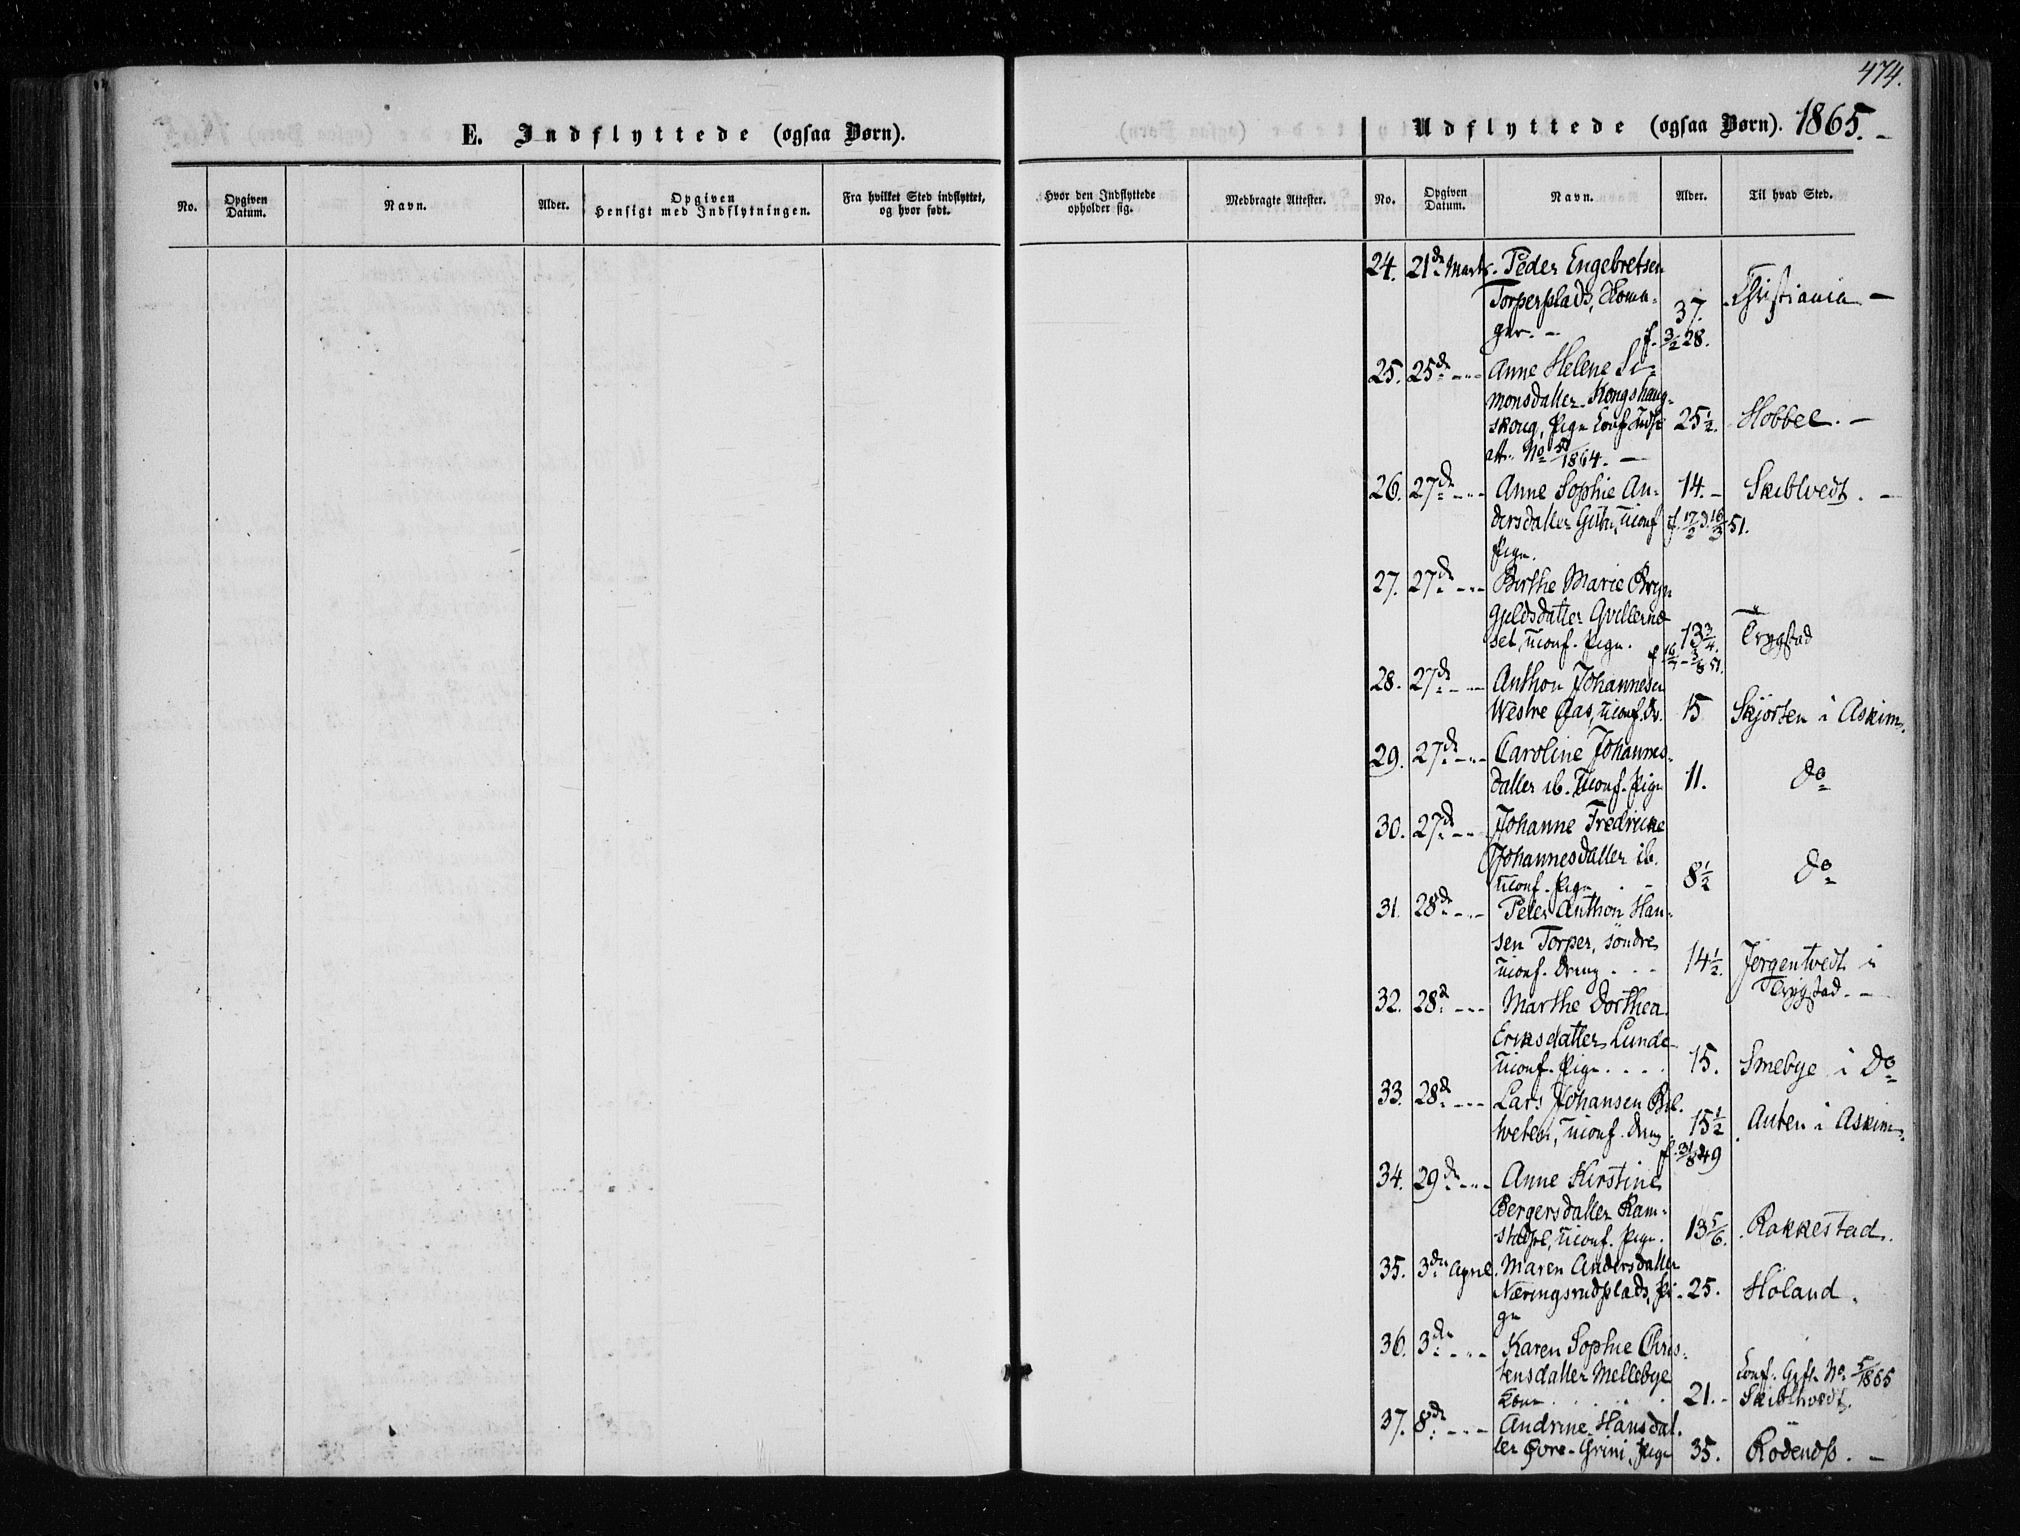 474.
E. Indflyttede (ogsaa Børn).
No.
Opgiven Datum.
Navn.
Alder.
Opgiven Hensigt med Indflytningen.
Fra hvilket Sted indflyttet, og hvor født.
Hvor den Indflyttede opholder sig.
Medbragte Attester.
Udflyttede (ogsaa Børn). 1865.-
No.
Opgiven Datum.
Navn.
Alder.
Til hvad Sted.
24. 21de Marts. Peder Engebretsen
Torperplads,
37. Christiania -
f. 3/2 28.
25. 25de -"- Anne Helene Si-
monsdatter Kongshaug-
skoug, Pige Conf. 25½. Hobbel. -
att. No 1864. -
26. 27de -"- Anne Sophie An- 14.- Skibtvedt. -
dersdatter uconf f. 17/2 d. 16/3 51.
Pige.
27. 27de -"- Birthe Marie Bryn-
gjeldsdatter
set, uconf. Pige. 13¾ Trygstad
28. 27de -"- Anthon Johannesen
Westre Aas, uconf. Dr. 15 Skjørten i Askim.
29. 27de -"- Caroline Johannes-
datter ib. uconf. Pige 11. do
30. 27de -"- Johanne Fredrikke
Johannesdatter ib.
uconf. Pige 8½ do
31. 28de -"- Peter Anthon Han-
sen Torper, søndre
uconf. Dreng 14½. Jørgentvedt i
Trygstad. -
32. 28de -"- Marthe Dorthea
Eriksdatter Lunde
uconf. Pige 15. Smebye i do
33. 28de -"- Lars Johansen
uconf. Dreng 15½ Auten i Askim.
f. 31/8 49
34. 29de -"- Anne Kirstine
Bergersdatter Ram-
stad uconf. Pige. 13 5/6. Rakkestad.
35. 3de April. Maren Andersdatter
Næringsrudplads, Pi- 25. Høland.
ge
36. 3de -"- Karen Sophie Chris-
tensdatter Mellebye Conf. Gift. No 5/1865
Kone 21.- Skibtvedt.
37. 8de -"- Andrine Hansdat-
ter Øvre-Grini, Pige 35. Rødenæs. -